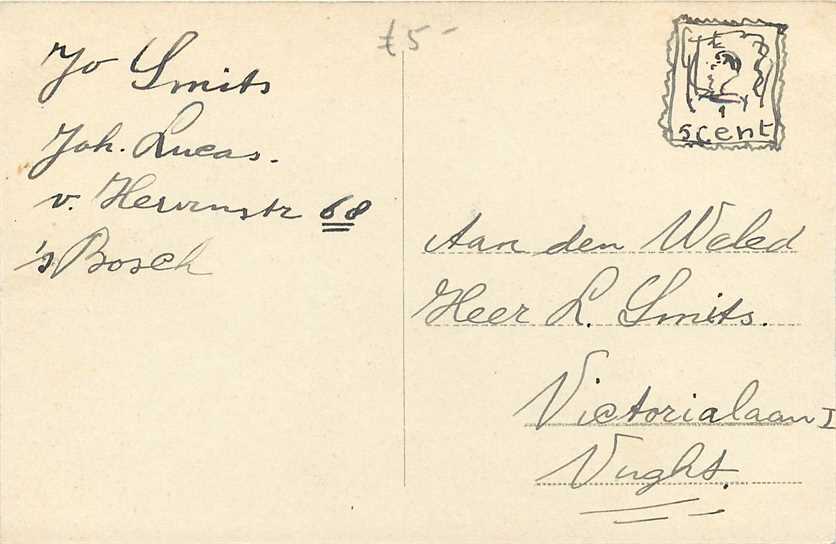 £5-
Jo Smits
Joh. Lucas.
v. Hervenstr 68
's Bosch
5 cent
Aan den Weled
Heer L. Smits.
Victorialaan I
Vught.